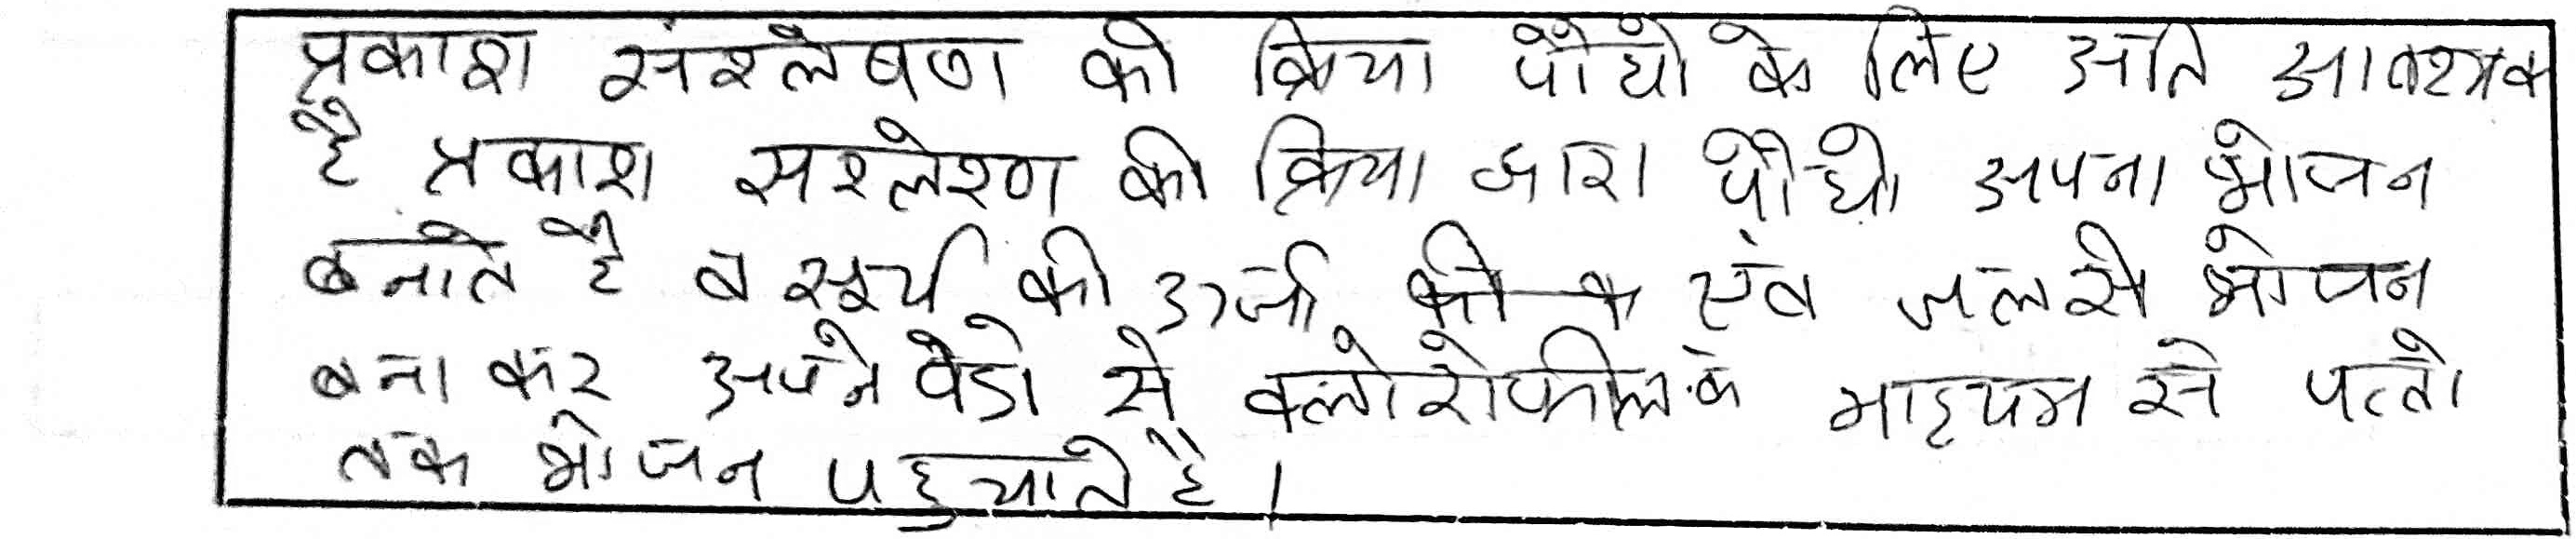 प्रकाश संश्लेषण की क्रिया पौधों के लिए अति आवश्यक
है प्रकाश सश्लेश्ण की क्रिया द्वारा पौधो अपना भोजन
बनाते है व सूर्य की उर्जा एंव जल से भोजन
बना कर अपने पेडो से क्लोरोफील के माध्यम से पत्तो
तक भोजन पहुचाते है।